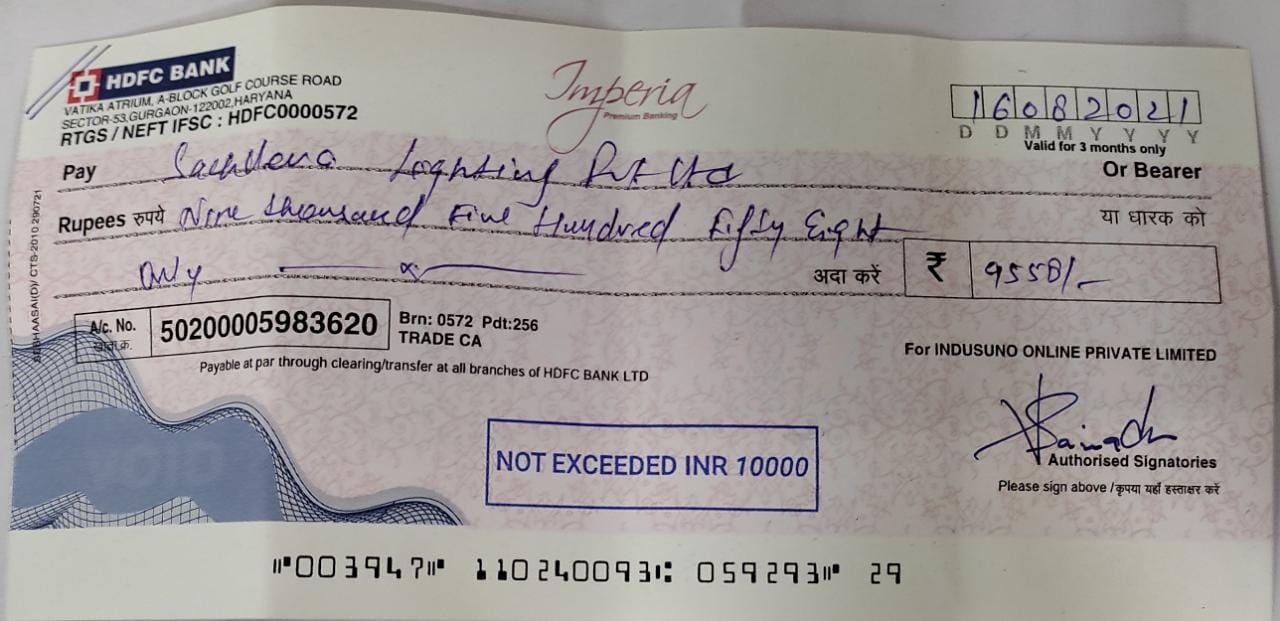 HDFC BANK
VATIKA ATRIUM, A-BLOCK GOLF COURSE ROAD
SECTOR-53,GURGAON-122002,HARYANA
RTGS / NEFT IFSC : HDFC0000572
Imperia
Premium Banking
16082021
D D M M Y Y Y Y
Valid for 3 months only
Pay Sachdeva Lighting Pvt Ltd
Or Bearer
Rupees रुपये Nine thousand Five Hundred Fifty Eight
या धारक को
only
अदा करें ₹ 9558/-
A/c. No. 50200005983620
खाता क्र.
Brn: 0572 Pdt:256
TRADE CA
Payable at par through clearing/transfer at all branches of HDFC BANK LTD
For INDUSUNO ONLINE PRIVATE LIMITED
NOT EXCEEDED INR 10000
Authorised Signatories
Please sign above /कृपया यहाँ हस्ताक्षर करें
CTS-2010 290721
VOID
⑈003947⑈ 110240093⑆ 059293⑈ 29